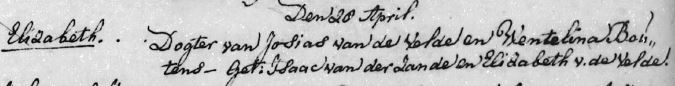 Den 28 April.
Elizabeth. . Dogter van Josias van de Velde en Wentelina Bou„
tens – Get: Isaac van der Zande en Elizabeth v. de Velde.